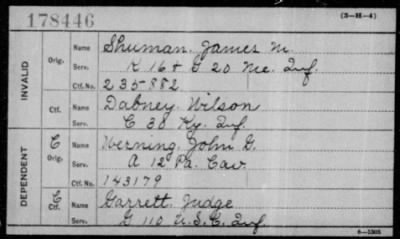 178446
(3-H-4)
INVALID
Orig.
Name Shuman. James M.
Serv. K 16 + G 20 Me. Inf.
Ctf. No. 235882
Ctf.
Name Dabney. Wilson
Serv. C 30 Ky. Inf.
DEPENDENT
C
Orig.
Name Werning, John G.
Serv. A 12 Pa. Cav.
Ctf. No. 143179
C
Ctf.
Name Garrett. Judge
Serv. G 110 U.S.C. Inf